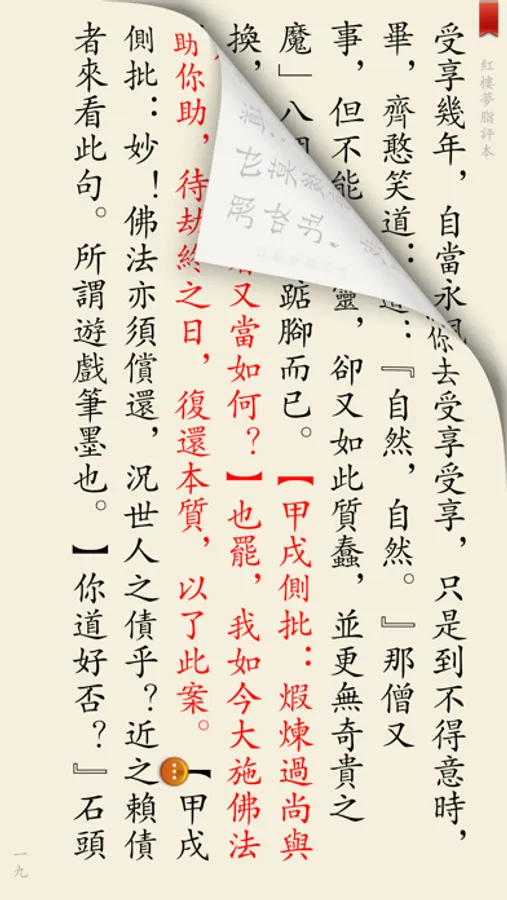 紅樓夢脂評本
受享幾年，自當永你去受享受享，只是到不得意時，
畢，齊憨笑道：道：『自然，自然。』那僧又
事，但不能靈，卻又如此質蠢，並更無奇貴之
魔」八踮腳而已。【甲戌側批：煆煉過尚與
換，又當如何？】也罷，我如今大施佛法
助你助，待劫終之日，復還本質，以了此案。【甲戌
側批：妙！佛法亦須償還，況世人之債乎？近之賴債
者來看此句。所謂遊戲筆墨也。】你道好否？』石頭
一九